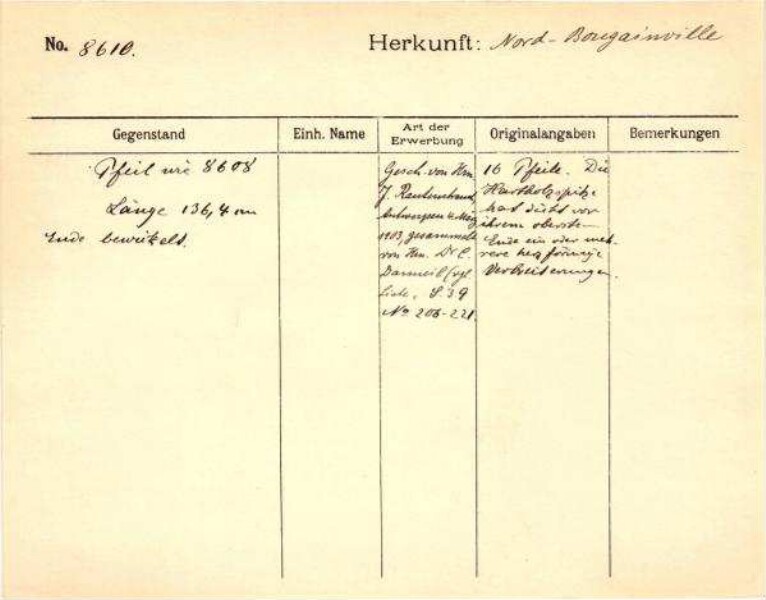 No. 8610. Herkunft: Nord-Bougainville
Gegenstand Einh. Name Art der Erwerbung Originalangaben Bemerkungen
Pfeil wie 8608
Länge 136,4 cm
Ende bewickelt.
Gesch. von Hrn.
J. Rautenstrauch,
Antwerpen 4. März
1903, gesammelt
von Hrn. Dr.
Danneil (vgl.
Liste, S. 39
No 206-221.
16 Pfeile. Die
Hartholzspitze
hat dicht vor
ihrem obersten
Ende ein oder meh-
rere
Verbreiterungen.